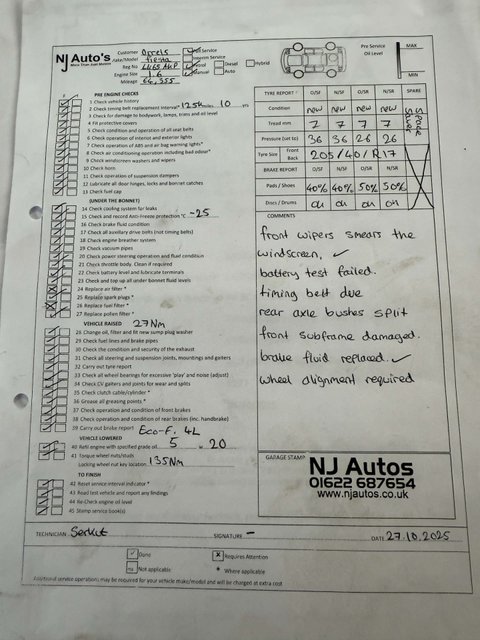 NJ Auto's
More Than Just Motors
Customer Orrels
Make/Model Fiesta
Reg No
Engine Size 1.6
Mileage 66,555
Full Service
Interim Service
Petrol
Diesel
Hybrid
Manual
Auto
Pre Service
Oil Level
MAX
MIN
PRE ENGINE CHECKS
1 Check vehicle history
2 Check timing belt replacement interval* 125k miles 10 yrs
3 Check for damage to bodywork, lamps, trims and oil level
4 Fit protective covers
5 Check condition and operation of all seat belts
6 Check operation of interior and exterior lights
7 Check operation of ABS and air bag warning lights*
8 Check air conditioning operation including bad odour*
9 Check windscreen washers and wipers
10 Check horn
11 Check operation of suspension dampers
12 Lubricate all door hinges, locks and bonnet catches
13 Check fuel cap
(UNDER THE BONNET)
14 Check cooling system for leaks
15 Check and record Anti-freeze protection °C -25
16 Check brake fluid condition
17 Check all auxiliary drive belts (not timing belts)
18 Check engine breather system
19 Check vacuum pipes
20 Check power steering operation and fluid condition
21 Check throttle body. Clean if required
22 Check battery level and lubricate terminals
23 Check and top up all under bonnet fluid levels
24 Replace air filter *
25 Replace spark plugs *
26 Replace fuel filter *
27 Replace pollen filter *
VEHICLE RAISED 27Nm
28 Change oil, filter and fit new sump plug washer
29 Check fuel lines and brake pipes
30 Check the condition and security of the exhaust
31 Check all steering and suspension joints, mountings and gaiters
32 Carry out tyre report
33 Check all wheel bearings for excessive 'play' and noise (adjust)
34 Check CV gaiters and joints for wear and splits
35 Check clutch cable/cylinder *
36 Grease all greasing points *
37 Check operation and condition of front brakes
38 Check operation and condition of rear brakes (inc. handbrake)
39 Carry out brake report Eco-F. 4L
VEHICLE LOWERED
40 Refil engine with specified grade oil 5 w 20
41 Torque wheel nuts/studs
Locking wheel nut key location 135Nm
TO FINISH
42 Reset service interval indicator *
43 Road test vehicle and report any findings
44 Re-Check engine oil level
45 Stamp service book(s)
TYRE REPORT O/SF N/SF N/SR O/SR SPARE
Condition new new new new
Tread mm 7 7 7 7
Pressure (set to) 36 36 26 26
Space Saver
Tyre Size Front Back 205/40/R17
BRAKE REPORT O/SF N/SF N/SR O/SR
Pads / Shoes 40% 40% 50% 50%
Discs / Drums OK OK OK OK
COMMENTS
front wipers smears the
windscreen, ✓
battery test failed.
timing belt due
rear axle bushes split
front subframe damaged.
brake fluid replaced. ✓
wheel alignment required
GARAGE STAMP
NJ Autos
01622 687654
www.njautos.co.uk
TECHNICIAN Serkut SIGNATURE DATE 27.10.2025
✓ Done
X Requires Attention
na Not applicable
* Where applicable
Additional service operations may be required for your vehicle make/model and will be charged at extra cost